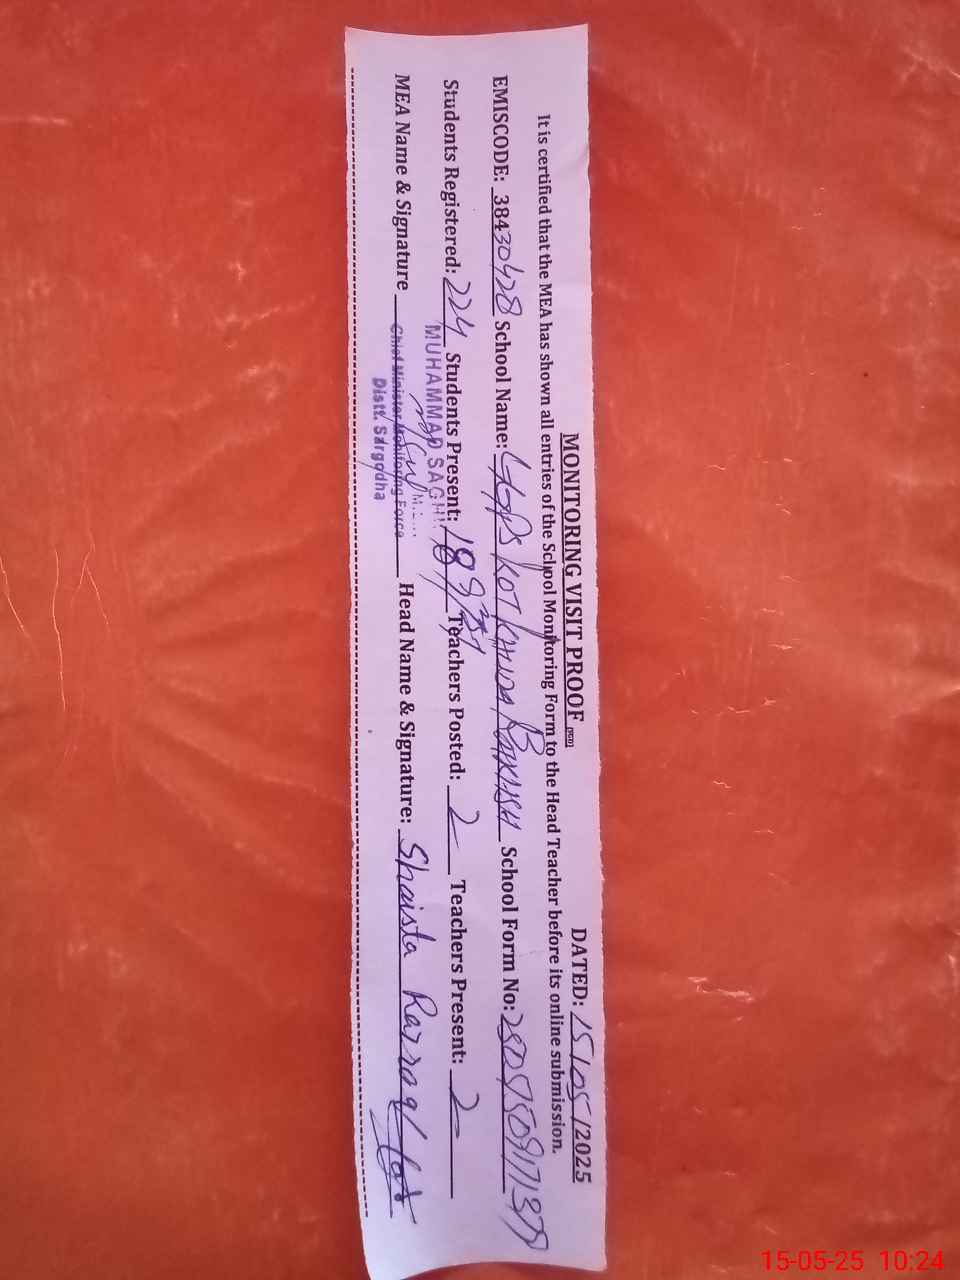 MONITORING VISIT PROOF (SED) DATED: 15/05/2025
It is certified that the MEA has shown all entries of the School Monitoring Form to the Head Teacher before its online submission.
EMISCODE: 38430428 School Name: GGPS KOT KHUDA BAKHSH School Form No:
Students Registered: 224 Students Present: Teachers Posted: 2 Teachers Present: 2
MUHAMMAD
MEA Name & Signature Head Name & Signature: Shaista Razzaq
Chief Minister Monitoring Force
Distt. Sargodha
15-05-25 10:24